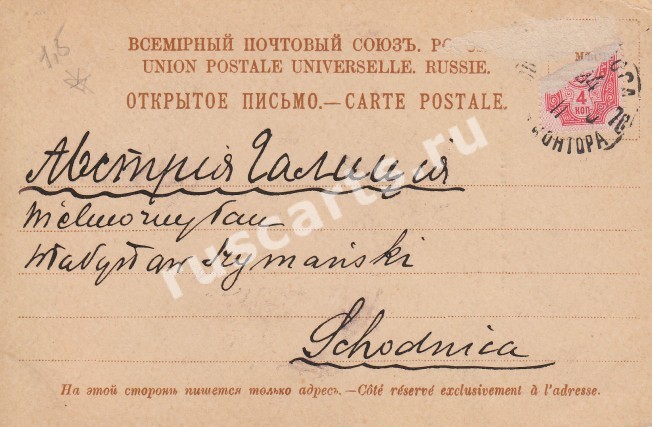 1,5
ВСЕМІРНЫЙ ПОЧТОВЫЙ СОЮЗЪ.
UNION POSTALE UNIVERSELLE. RUSSIE.
ОТКРЫТОЕ ПИСЬМО.—CARTE POSTALE.
4
КОП
КОНТОРА
Австрія Галиція
Wielmożny Pan
Władysław Szymański
Schodnica
На этой сторонѣ пишется только адресъ.—Côté réservé exclusivement à l'adresse.
ruscarts.ru